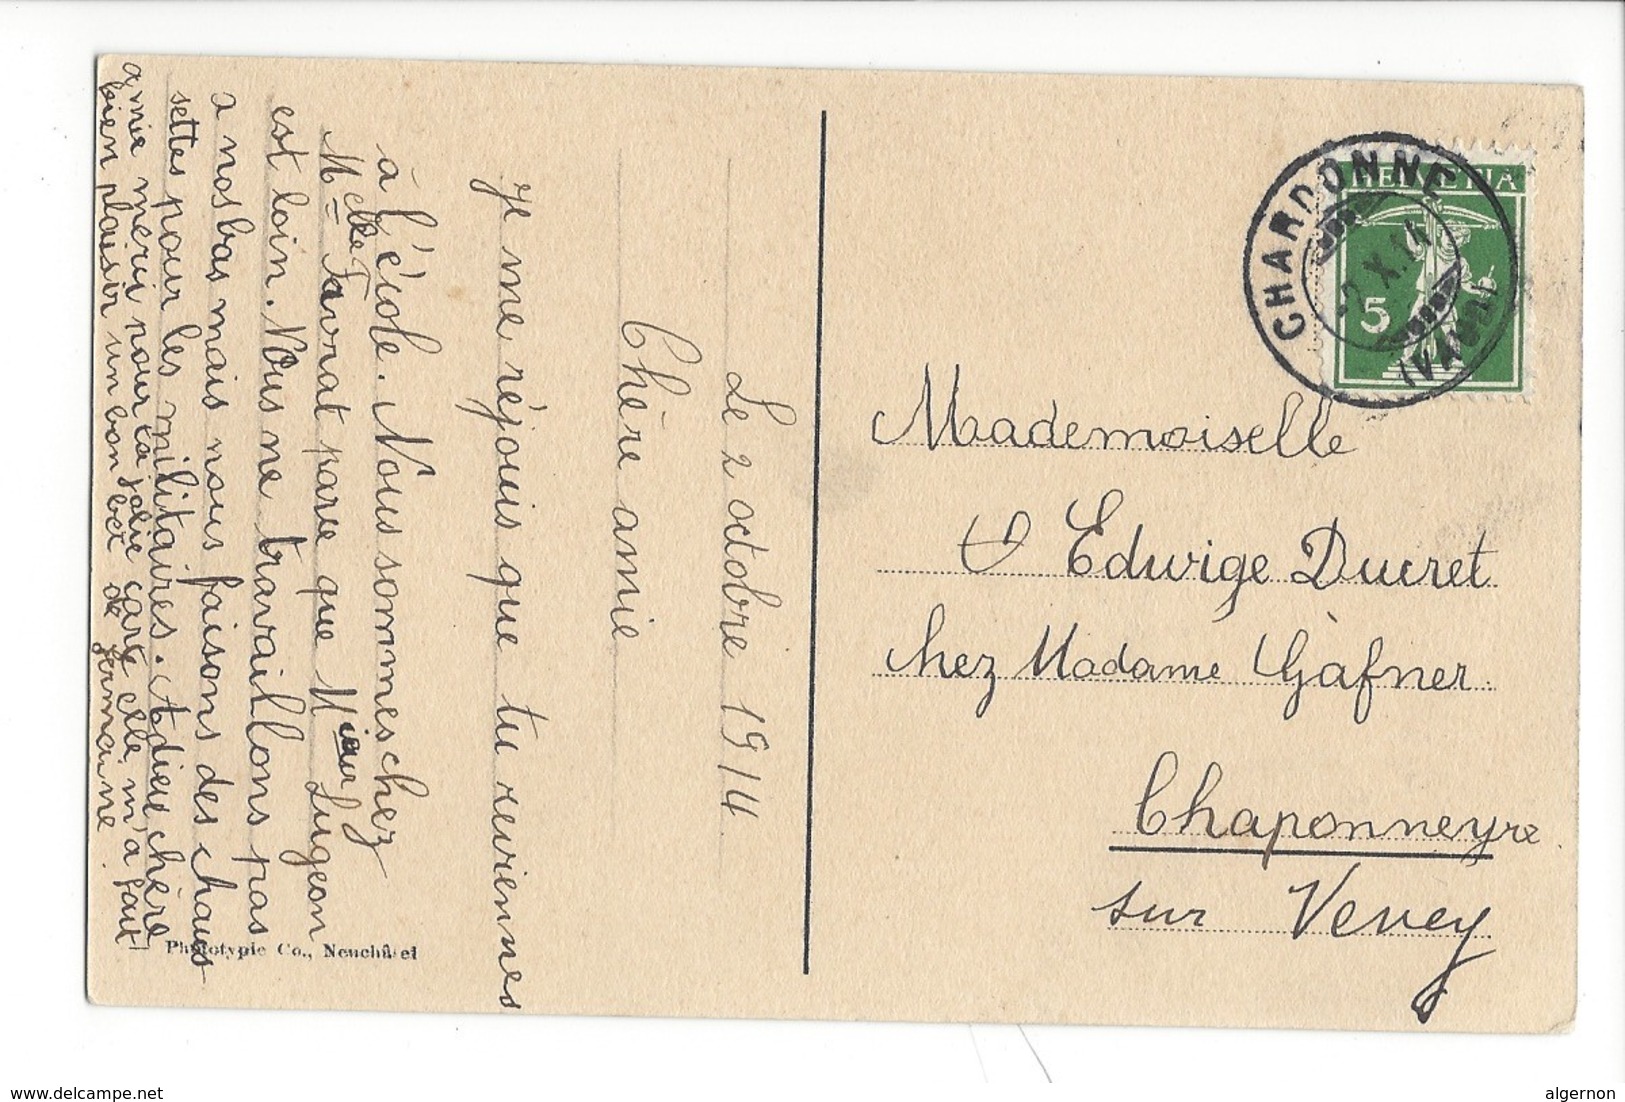 Le 2 octobre 1914
Chère amie
Je me réjouis que tu reviennes
à l'école. Nous sommes chez
Melle Favrat parce que Mieur Lugeon
est loin. Nous ne travaillons pas
a nos bas mais nous faisons des chaus
settes pour les militaires. Adieu chère
amie merci pour ta jolie carte elle m'a fait
bien plaisir un bon bec de
germaine
Phototypie Co., Neuchâtel
HELVETIA
5
CHARDONNE
-2.X.14
(VAUD)
Mademoiselle
Edwige Ducret
chez Madame Gafner
Chaponneyre
sur Vevey
www.delcampe.net
algernon